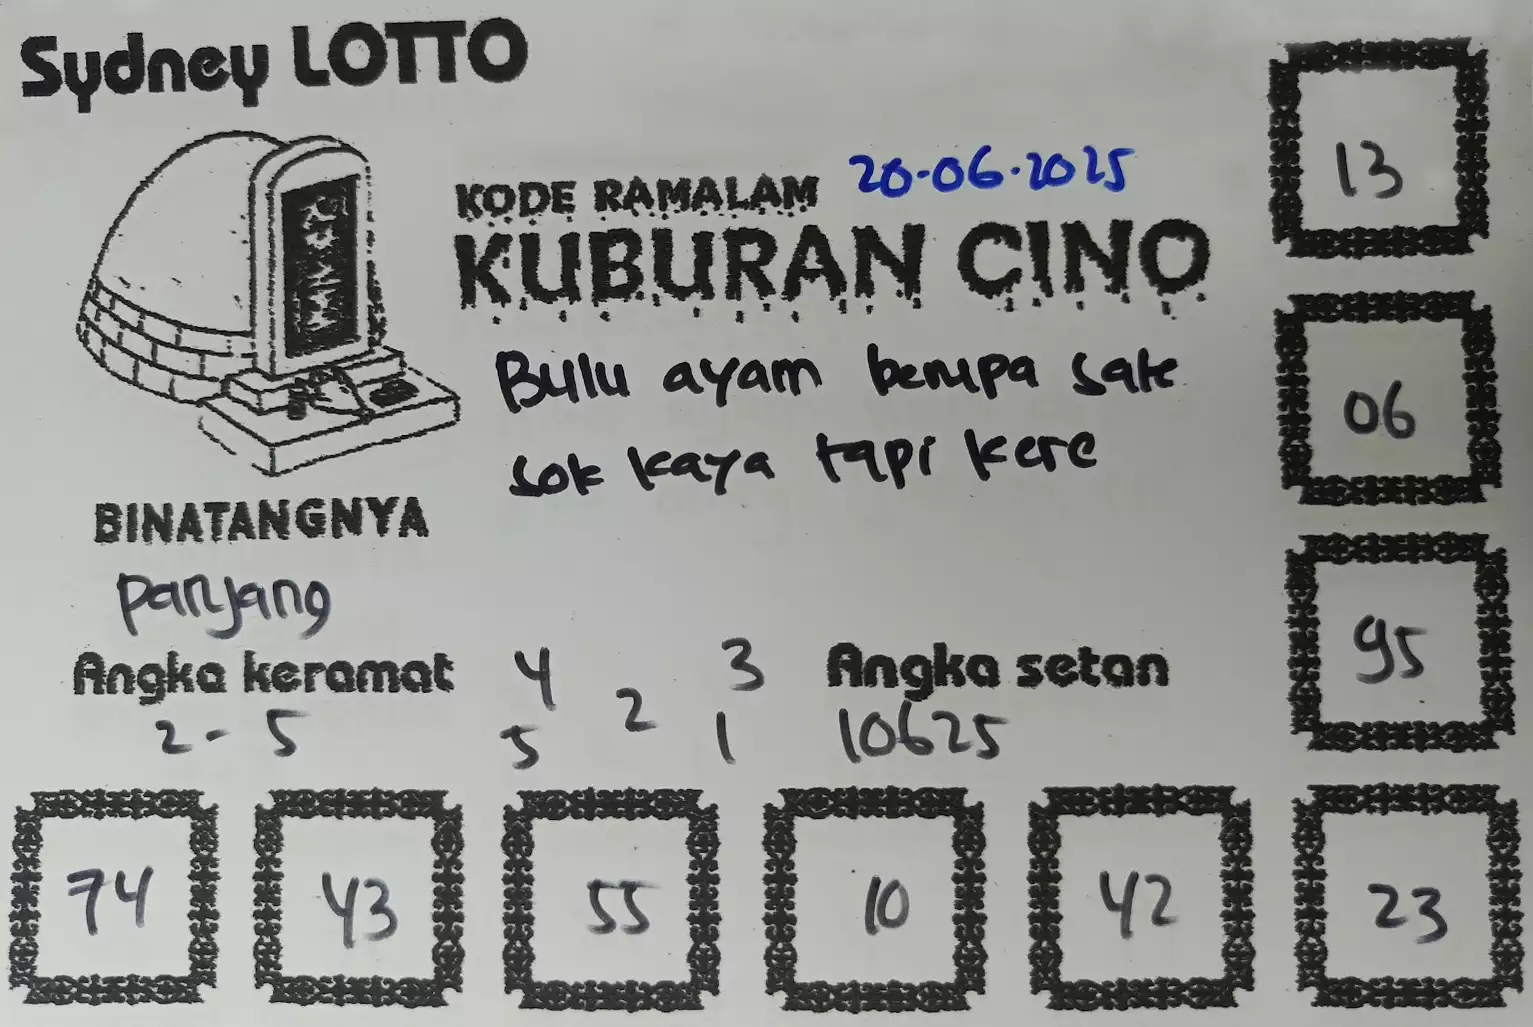 Sydney LOTTO
13
KODE RAMALAM 20-06-2025
KUBURAN CINO
Bulu ayam berupa sate
sok kaya tapi kere
06
BINATANGNYA
Panjang
95
Angka keramat 4 3 Angka setan
2 - 5 5 2 1 10625
74 43 55 10 42 23